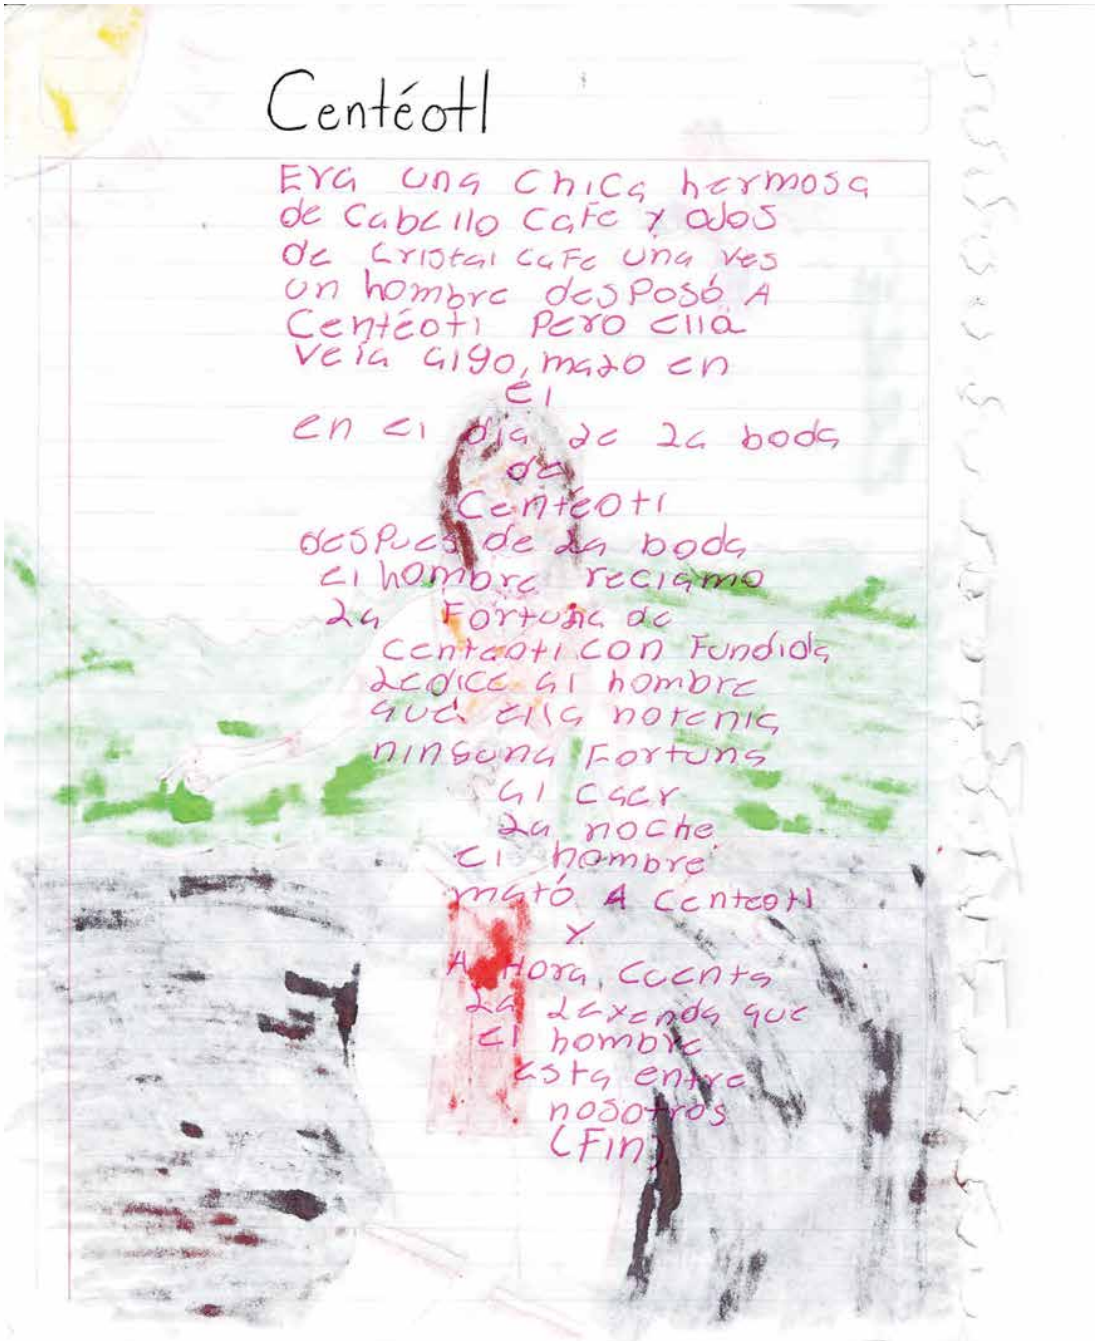 Centéotl
Era una chica hermosa
de cabello cafe y ojos
de cristal cafe una ves
un hombre desposó A
Centéotl pero ella
veia algo, malo en
el
en el dia de la boda
de
Centéotl
despues de la boda
el hombre reclamo
la Fortuna de
Centeotl con Fundida
le dice al hombre
que ella notenia
ninguna Fortuna
al caer
la noche
el hombre
mató A Centeotl
y
A Hora, cuenta
la leyenda que
el hombre
esta entre
nosotros
(Fin)